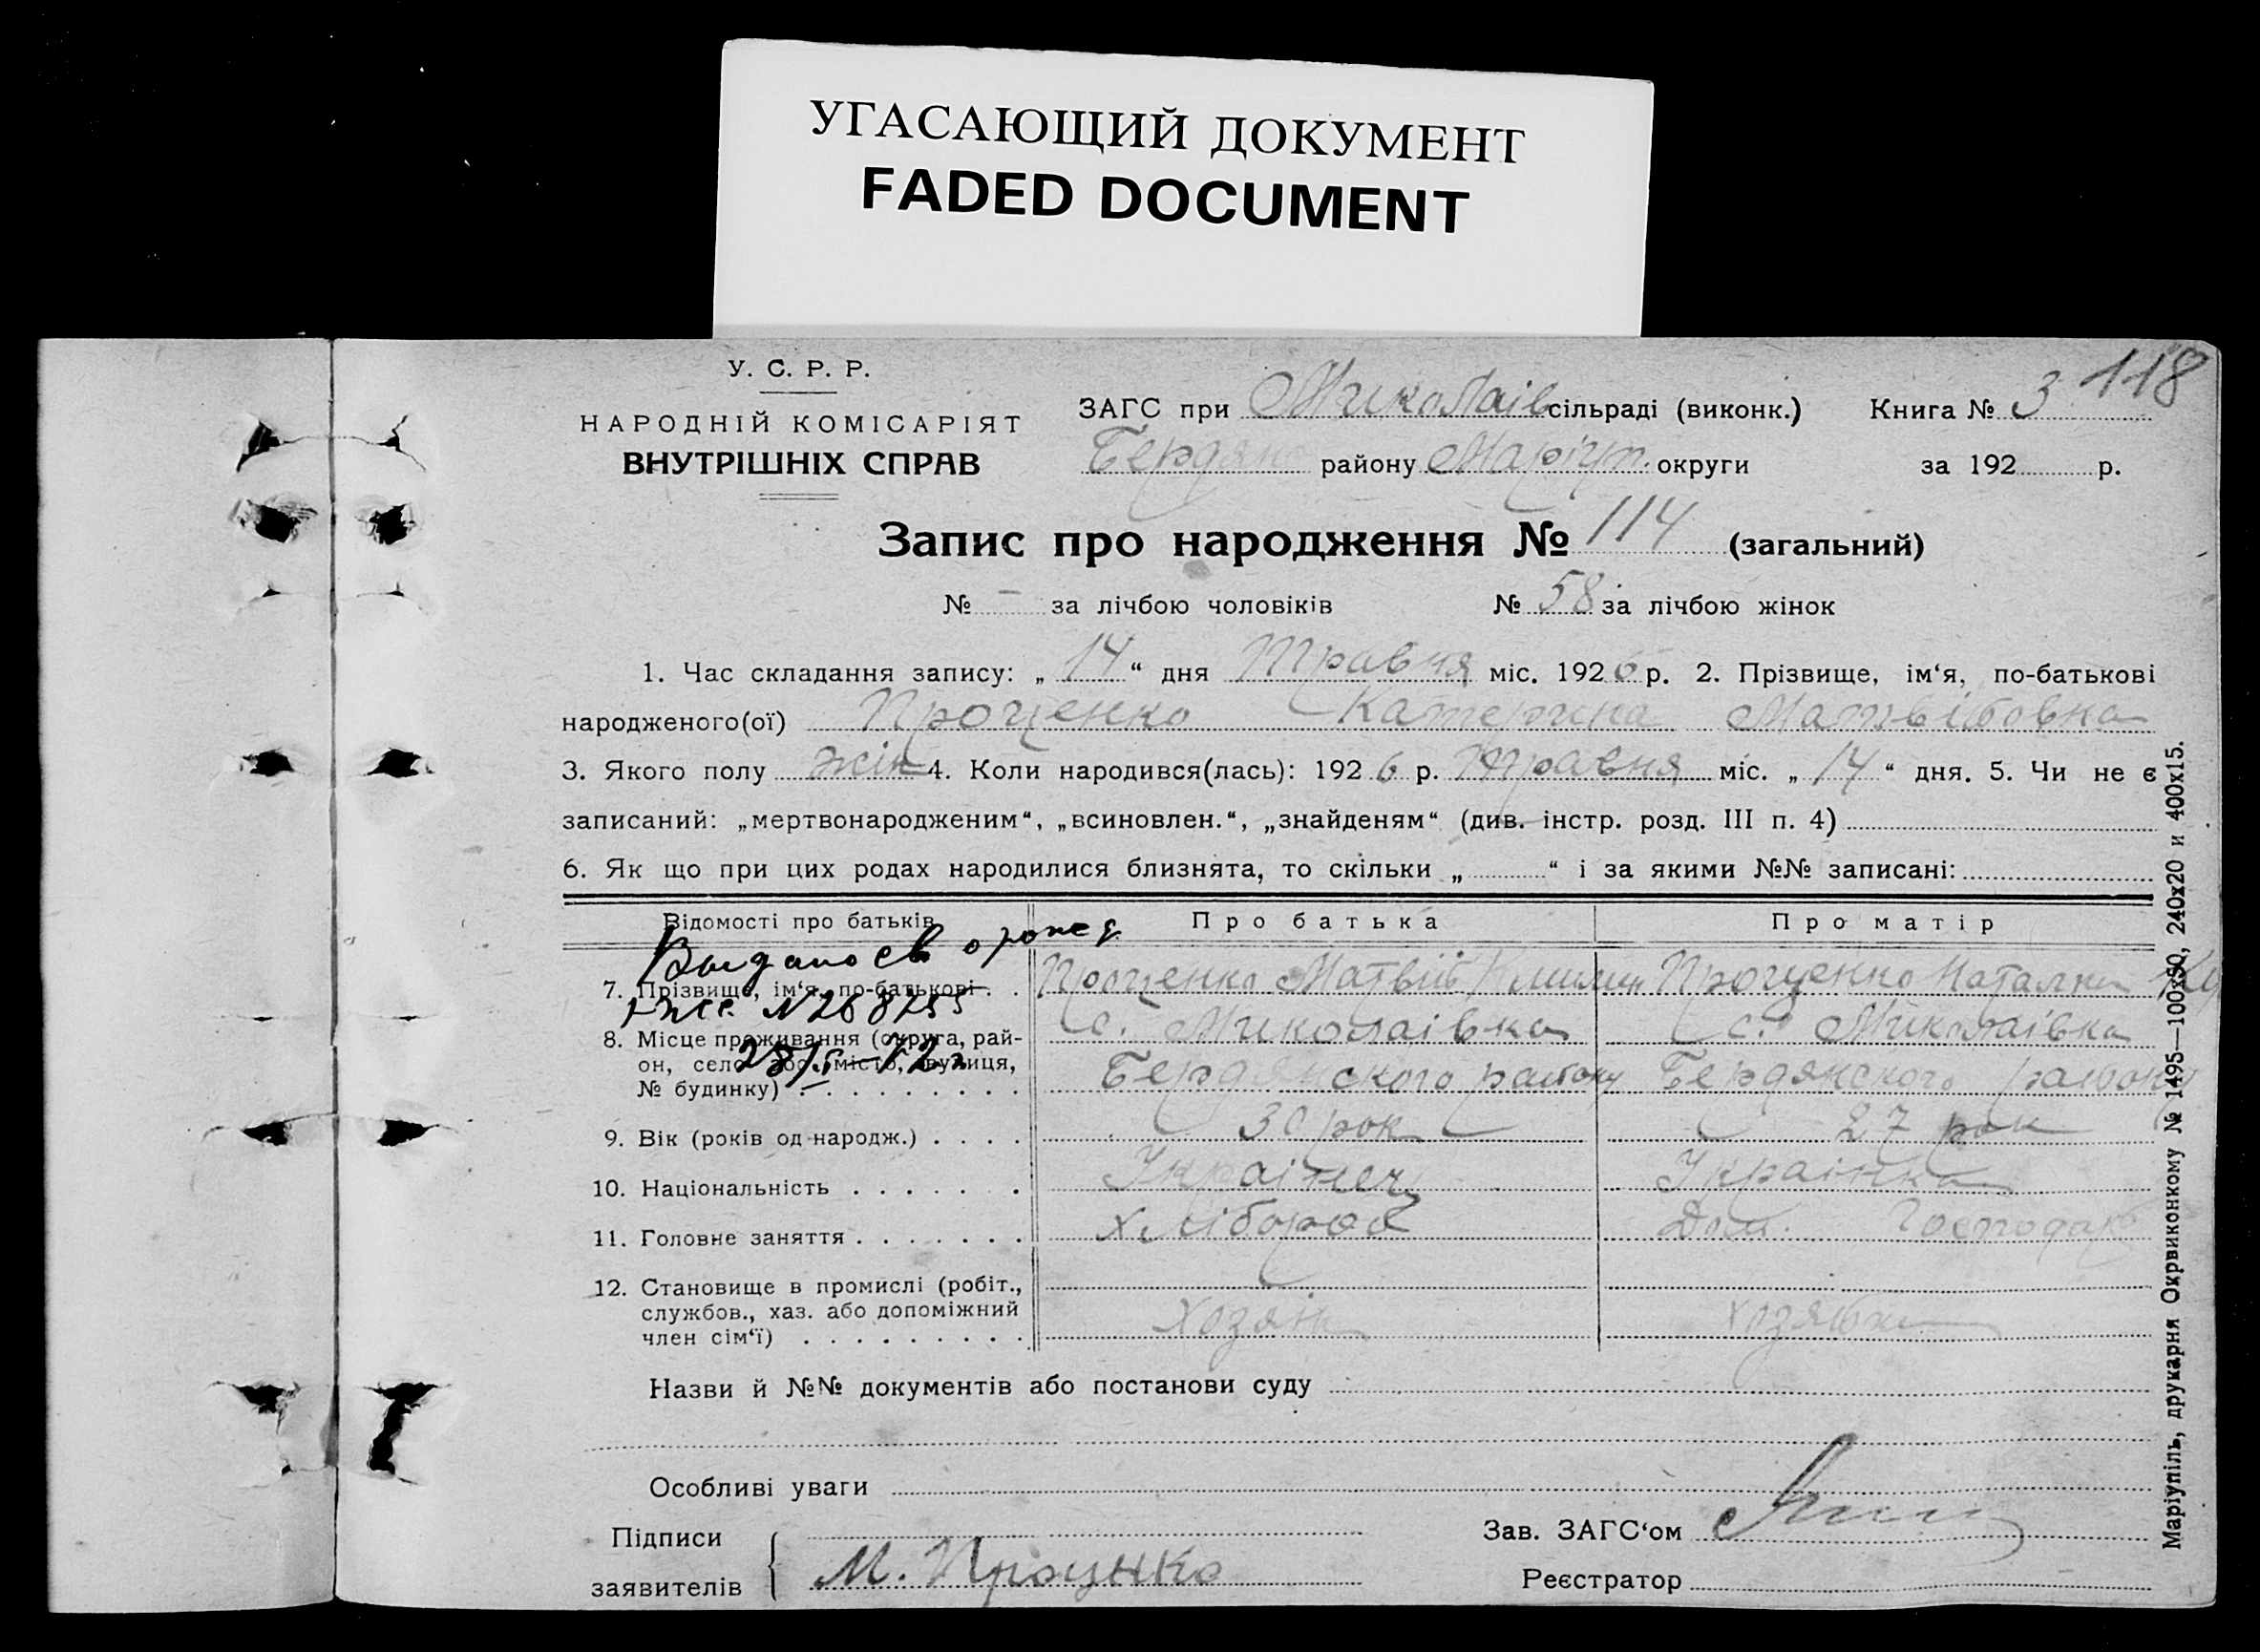 УГАСАЮЩИЙ ДОКУМЕНТ
FADED DOCUMENT
118
У. С. Р. Р.
НАРОДНІЙ КОМІСАРІЯТ
ВНУТРІШНІХ СПРАВ
ЗАГС при Миколаїв сільраді (виконк.) Книга № 3
Бердян району Маріуп. округи за 192 р.
Запис про народження № 114 (загальний)
№ – за лічбою чоловіків № 58 за лічбою жінок
1. Час складання запису: „ 14 “ дня Травня міс. 192 6 р. 2. Прізвище, ім‘я, по-батькові
народженого(ої) Проценко Катерина Матвіївовна
3. Якого полу жін 4. Коли народився(лась): 192 6 р. Травня міс. „ 14 “ дня. 5. Чи не є
записаний: „мертвонародженим“, „всиновлен.“, „знайденям“ (див. інстр. розд. III п. 4)
6. Як що при цих родах народилися близнята, то скільки „ “ і за якими №№ записані:
Відомості про батьків Про батька Про матір
Выдано св о рожд
7. Прізвище, ім‘я, по-батькові . . Проценко Матвій Климин Проценко Наталки
N 268755
8. Місце проживання (округа, рай- с. Миколаівка с. Миколаівка
он, село або місто, вулиця,
№ будинку) . . . . . . . . . Бердянского району Бердянского району
9. Вік (років од народж.) . . . . 30 рок 27 рок
10. Національність . . . . . . . Українец Українка
11. Головне заняття . . . . . . . Хлібороб Дом. Господар
12. Становище в промислі (робіт.,
службов., хаз. або допоміжний
член сім‘ї) . . . . . . . . . Хозяін хозяйка
Назви й №№ документів або постанови суду
Особливі уваги
Підписи
заявителів М. Процнко
Зав. ЗАГС‘ом
Реєстратор
Маріупіль, друкарня Окрвиконкому № 1495—100х50, 240х20 и 400х15.